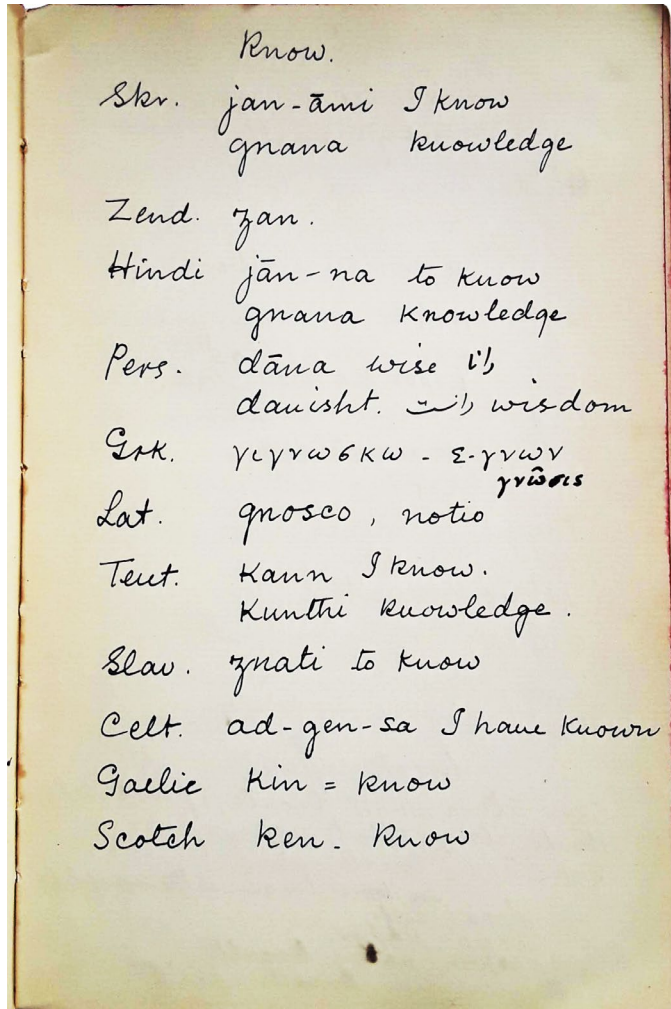 Know.
Skr. jan-āmi I know
gnana knowledge
Zend. zan.
Hindi jān-na to know
gnana knowledge
Pers. dāna wise دانا
danisht. wisdom
Grk. γιγνωσκω - ε-γνων
γνῶσις
Lat. gnosco, notio
Teut. Kann I know.
Kunthi knowledge.
Slav. znati to know
Celt. ad-gen-sa I have known
Gaelic Kin = know
Scotch ken - know